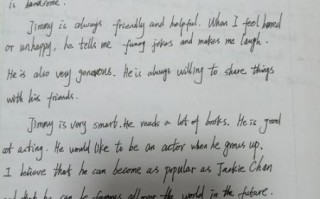 is handsome.
Jimmy is always friendly and helpful. When I feel bored
or unhappy, he tells me funny jokes and makes me laugh.
He is also very generous. He is always willing to share things
with his friends.
Jimmy is very smart. He reads a lot of books. He is good
at acting. He would like to be an actor when he grows up.
I believe that he can become as popular as Jackie Chan
and that he can be famous all over the world in the future.